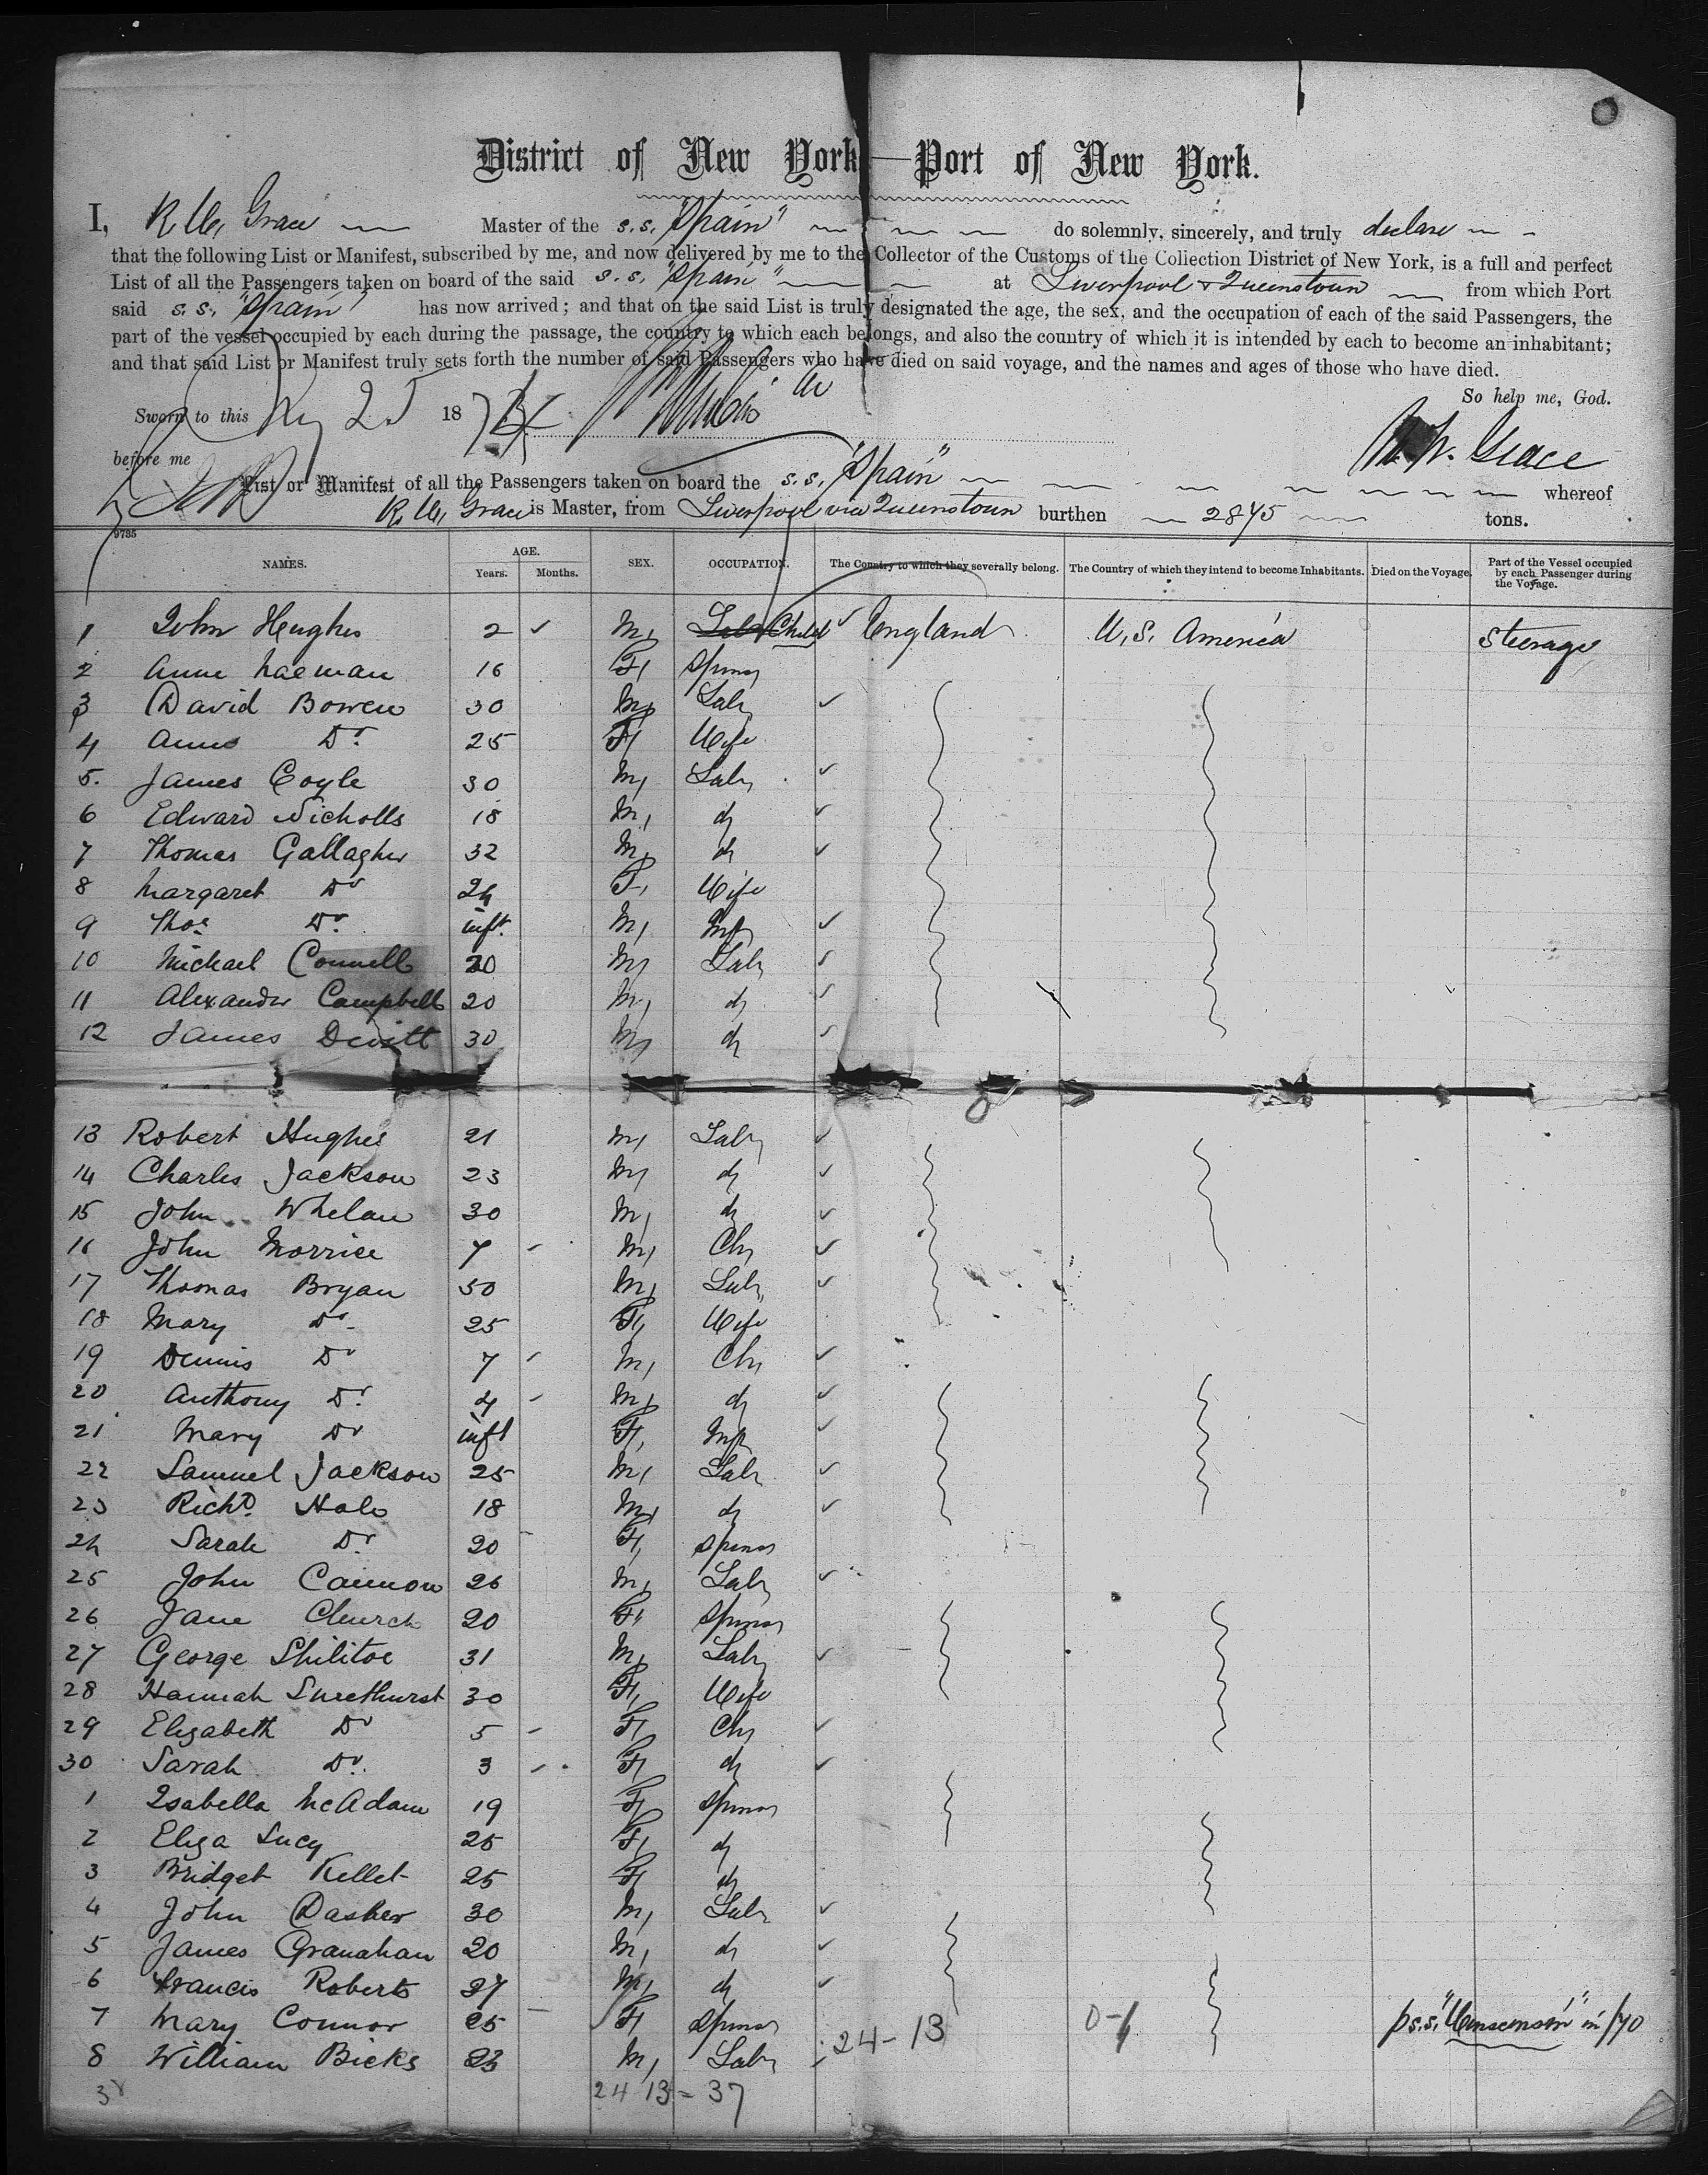 District of New York—Port of New York.
I, R. W. Grace Master of the s.s. "Spain" do solemnly, sincerely, and truly declare
that the following List or Manifest, subscribed by me, and now delivered by me to the Collector of the Customs of the Collection District of New York, is a full and perfect
List of all the Passengers taken on board of the said s.s. "Spain" at Liverpool & Queenstown from which Port
said s.s. "Spain" has now arrived; and that on the said List is truly designated the age, the sex, and the occupation of each of the said Passengers, the
part of the vessel occupied by each during the passage, the country to which each belongs, and also the country of which it is intended by each to become an inhabitant;
and that said List or Manifest truly sets forth the number of said Passengers who have died on said voyage, and the names and ages of those who have died.
So help me, God.
Sworn to this 25 18
before me
R. W. Grace
List or Manifest of all the Passengers taken on board the s.s. "Spain" whereof
R. W. Grace is Master, from Liverpool via Queenstown burthen 2845 tons.
9785
NAMES. AGE. Years. Months. SEX. OCCUPATION. The Country to which they severally belong. The Country of which they intend to become Inhabitants. Died on the Voyage. Part of the Vessel occupied by each Passenger during the Voyage.
1 John Hughes 2 ✓ M, Child ✓ England U.S. America Steerage
2 Anne 16 F, Spins
3 David Bowen 30 M, Labr ✓
4 Anne Do. 25 F, Wife
5. James Coyle 30 M, Labr ✓
6 Edward Nicholls 18 M, do ✓
7 Thomas Gallagher 32 M, do ✓
8 Margaret Do 24 F, Wife
9 Thos. Do. inft. M, Inft ✓
10 Michael Connell 20 M, Labr ✓
11 Alexander Campbell 20 M, do ✓
12 James Devitt 30 M, do ✓
13 Robert Hughes 21 M, Labr ✓
14 Charles Jackson 23 M, do ✓
15 John Whelan 30 M, do ✓
16 John Morrice 7 - M, Ch, ✓
17 Thomas Bryan 30 M, Labr ✓
18 Mary Do. 25 F, Wife
19 Dennis Do 7 - M, Ch, ✓
20 Anthony Do. 4 - M, do ✓
21 Mary Do inft F, Inft ✓
22 Samuel Jackson 25 M, Labr ✓
23 Richd. Hale 18 M, do ✓
24 Sarah Do. 20 F, Spins
25 John Cannon 26 M, Labr ✓
26 Jane Church 20 F, Spins
27 George Shilitoe 31 M, Labr ✓
28 Hannah Smethurst 30 F, Wife
29 Elizabeth Do 5 - F, Ch, ✓
30 Sarah Do. 3 - F, do ✓
1 Isabella McAdam 19 F, Spins
2 Eliza Lucy 25 F, do
3 Bridget Kellet 25 F, do
4 John Dasher 30 M, Labr ✓
5 James Granahan 20 M, do ✓
6 Francis Roberts 27 M, do ✓
7 Mary Connor 25 F, Spins 24-13
8 William Bicks 23 M, Labr
38 24 13 = 37